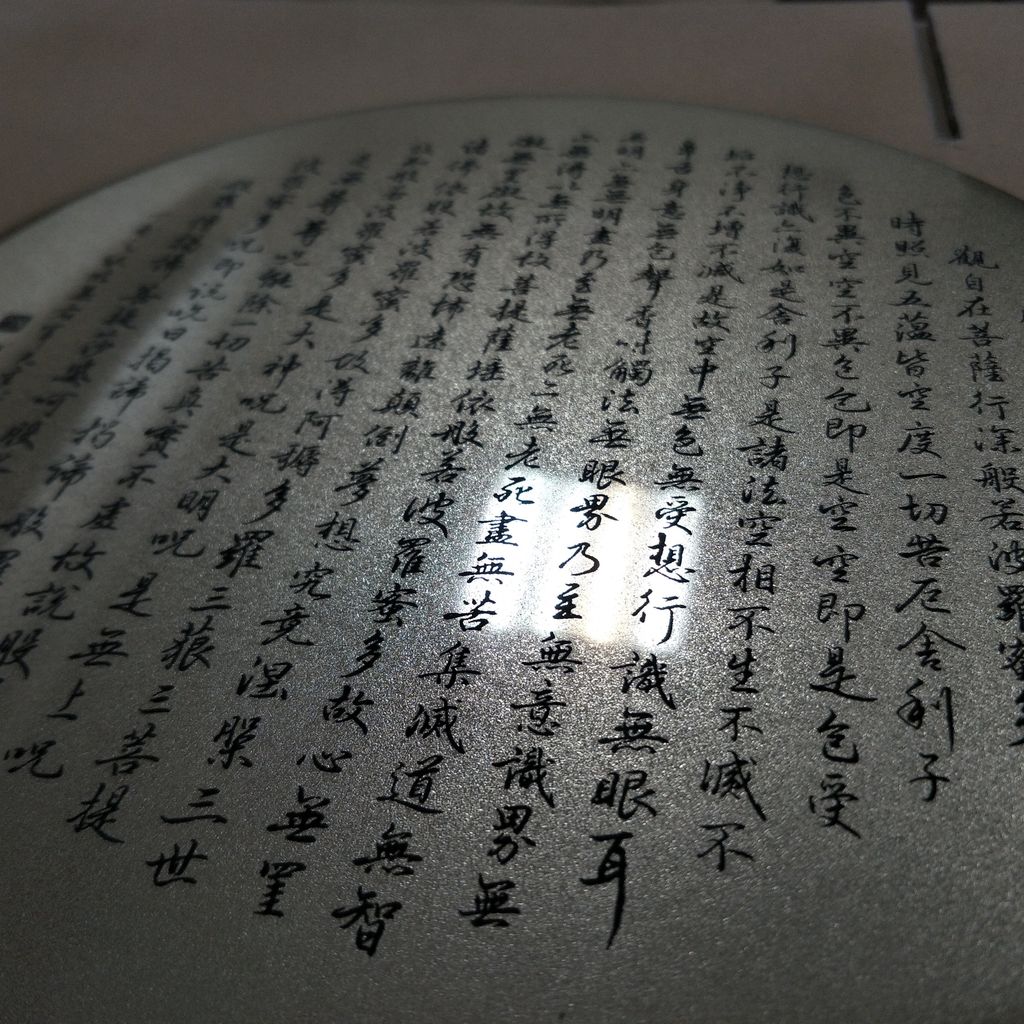 觀自在菩薩行深般若波羅蜜多
時照見五蘊皆空度一切苦厄舍利子
色不異空空不異色色即是空空即是色受
想行識亦復如是舍利子是諸法空相不生不滅不
垢不淨不增不減是故空中無色無受想行識無眼耳
鼻舌身意無色聲香味觸法無眼界乃至無意識界無
無明亦無無明盡乃至無老死亦無老死盡無苦集滅道無智
亦無得以無所得故菩提薩埵依般若波羅蜜多故心無罣
礙無罣礙故無有恐怖遠離顛倒夢想究竟涅槃三世
諸佛依般若波羅蜜多故得阿耨多羅三藐三菩提
故知般若波羅蜜多是大神咒是大明咒是無上咒
是無等等咒能除一切苦真實不虛故說般
若波羅蜜多咒即說咒曰揭諦揭諦般羅